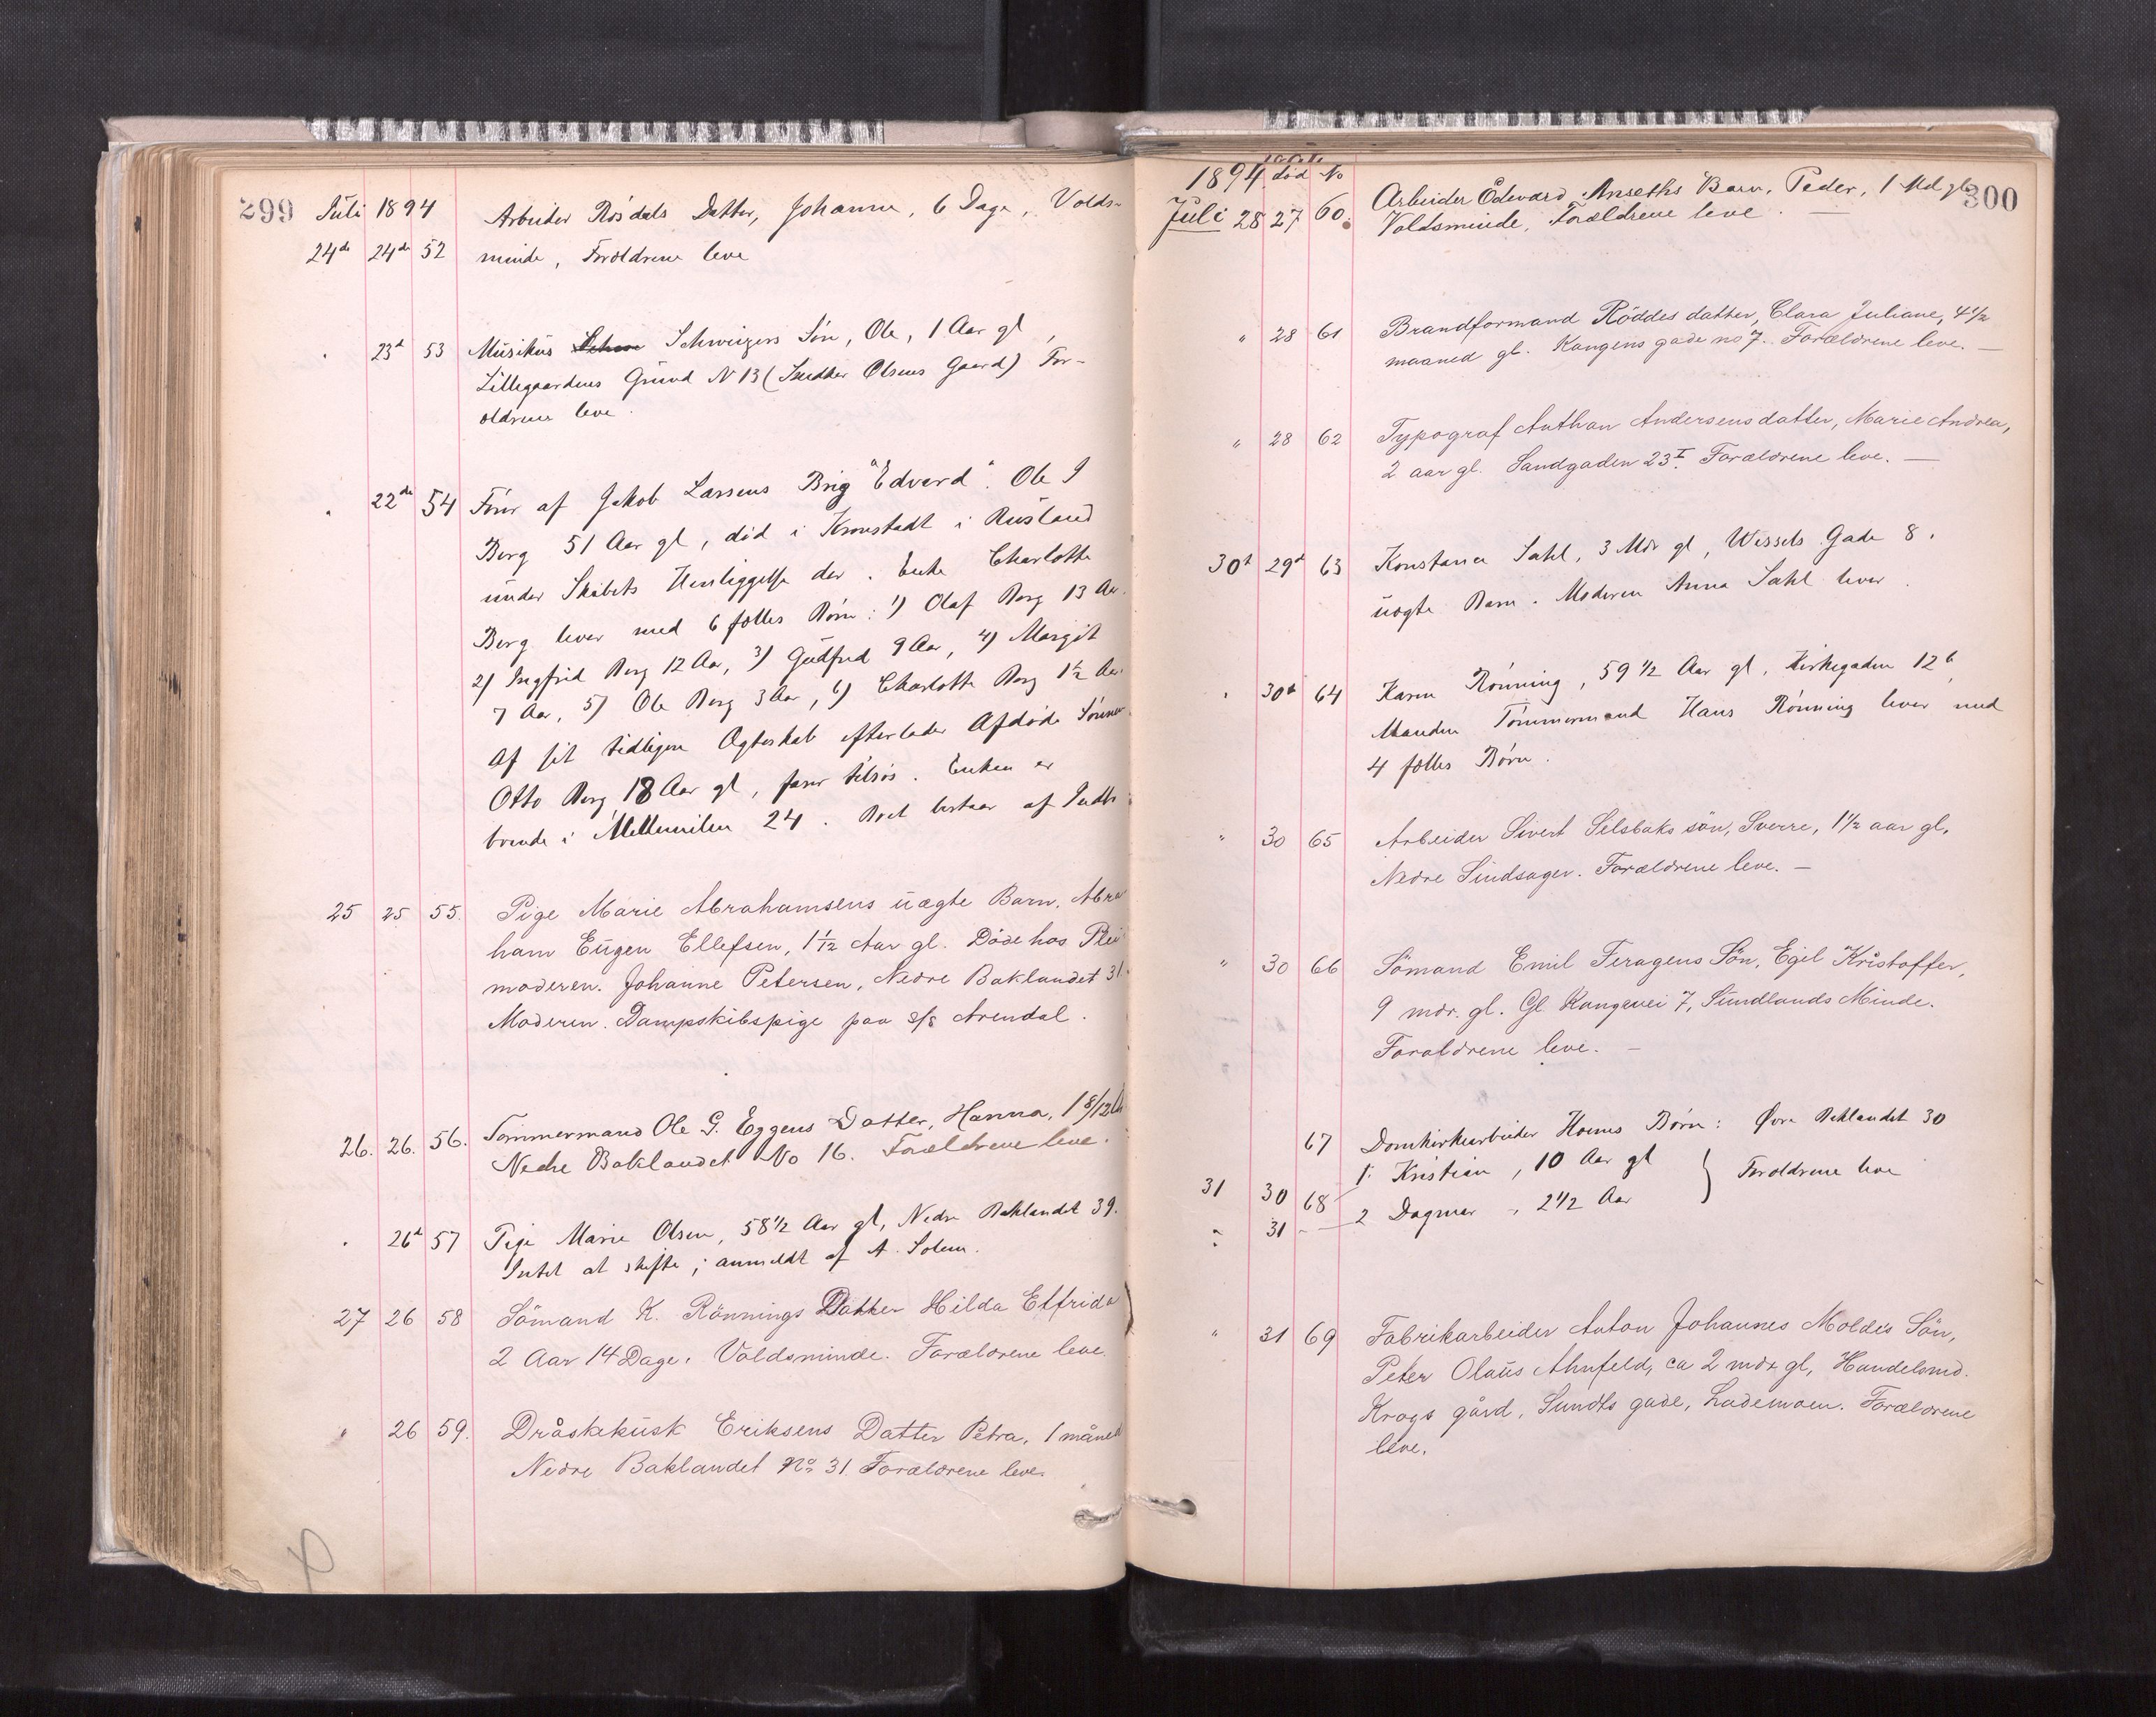 299
Juli 1894
Arbeider Rosdals Datter, Johanne, 6 Dage, Volds-
24de 24de 52 minde, Forældrene leve
" 23d 53 Musikus Schweizers Søn, Ole, 1 Aar gl,
Lillegaardens Grund N 13 (Snedker Olsens Gaard) For-
ældrene leve.
" 22de 54 Fører af Jakob Larsens Brig "Edvard". Ole
Berg 51 Aar gl, død i Kronstadt i Rusland
under Skibets Henliggelse der. Enke Charlotte
Berg lever med 6 fælles Børn: 1) Olaf Berg 13 Aar
2) Ingfrid Berg 12 Aar, 3) Gudfred 9 Aar, 4) Margit
7 Aar, 5) Ole Berg 3 Aar, 6) Charlotte Berg 1½ Aar.
Af sit tidligere Ægteskab efterlader Afdøde Sønnen
Otto Berg 18 Aar gl, farer tilsøs. Enken er
boende i Mellemilen 24. Boet bestaar af Indbo
25 25 55. Pige Marie Abrahamsens uægte Barn, Abra
ham Eugen Ellefsen, 1 1/12 Aar gl. Døde hos Plei
moderen. Johanne Petersen, Nedre Baklandet 31.
Moderen. Dampskibspige paa s/s Arendal.
26. 26. 56. Tømmermand Ole G. Eggens Datter, Hanna, 1 8/12 Aar
Nedre Baklandet No 16. Forældrene leve.
" 26d 57 Pige Marie Olsen, 58½ Aar gl, Nedre Baklandet 39.
Intet at skifte; anmeldt af A. Solem.
27 26 58 Sömand K. Rönnings Datter Hilda Elfrida
2 Aar 14 Dage. Voldsminde. Forældrene leve.
" 26 59. Dråskekusk Eriksens Datter Petra, 1 måned
Nedre Baklandet No 31. Forældrene leve.
300
1894 død No
Juli 28 27 60. Arbeider Edvard Anseths Barn, Peder, 1 Md gl.
Voldsminde, Forældrene leve. —
" 28 61 Brandformand Röddes datter, Clara Juliane, 4½
maaned gl. Kongens gade no 7. Forældrene leve. —
" 28 62 Typograf Anthon Andersens datter, Marie Andrea,
2 aar gl. Sandgaden 23 I. Forældrene leve. —
30d 29d 63 Konstance Sahl, 3 Mdr gl, Wessels Gade 8.
uægte Barn. Moderen Anna Sahl lever.
" 30d 64 Karen Rønning, 59½ Aar gl, Kirkegaden 12b,
Manden Tømmermand Hans Rønning lever med
4 fælles Børn.
" 30 65 Arbeider Sivert Selsbaks sön, Sverre, 1½ aar gl,
Nedre Sindsager. Forældrene leve. —
" 30 66 Sömand Emil Feragens Sön, Egil Kristoffer,
9 mdr. gl. Gl. Kongevei 7, Sundlands Minde.
Forældrene leve. —
67 Domkirkearbeider Hoems Børn: Øvre Baklandet 30
1. Kristian, 10 Aar gl } Forældrene leve
31 30 68
" 31 - 2 Dagmar, 2½ Aar
" 31 69 Fabrikarbeider Anton Johannes Moldes Sön,
Peter Olaus Ahnfeld, ca 2 mdr gl, Handelsmd.
Krogs gård, Sundts gade, Lademoen. Forældrene
leve.